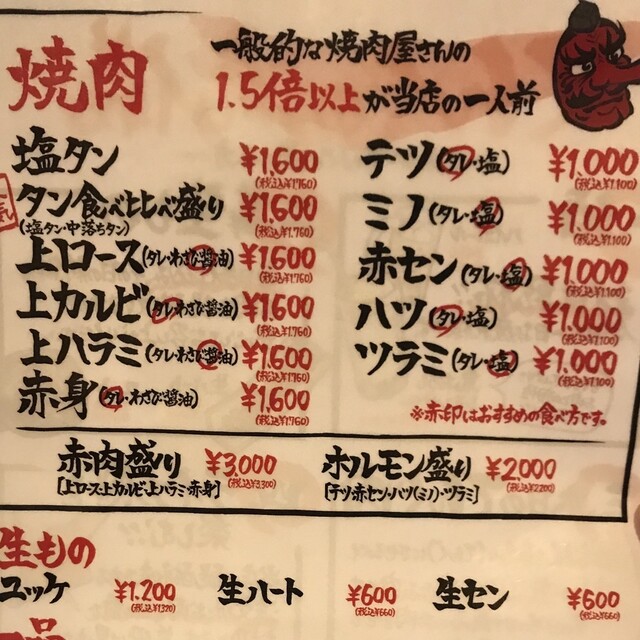 焼肉
一般的な焼肉屋さんの
1.5倍以上が当店の一人前
塩タン ¥1,600
(税込¥1,760)
タン食べ比べ盛り ¥1,600
(塩タン・中落ちタン) (税込¥1,760)
上ロース(タレ・わさび醤油) ¥1,600
(税込¥1,760)
上カルビ(タレ・わさび醤油) ¥1,600
(税込¥1,760)
上ハラミ(タレ・わさび醤油) ¥1,600
(税込¥1,760)
赤身(タレ・わさび醤油) ¥1,600
(税込¥1,760)
テツ(タレ・塩) ¥1,000
(税込¥1,100)
ミノ(タレ・塩) ¥1,000
(税込¥1,100)
赤セン(タレ・塩) ¥1,000
(税込¥1,100)
ハツ(タレ・塩) ¥1,000
(税込¥1,100)
ツラミ(タレ・塩) ¥1,000
(税込¥1,100)
※赤印はおすすめの食べ方です。
赤肉盛り ¥3,000
[上ロース・上カルビ・上ハラミ・赤身] (税込¥3,300)
ホルモン盛り ¥2,000
[テツ・赤セン・ハツ(ミノ)・ツラミ] (税込¥2200)
生もの
ユッケ ¥1,200
(税込¥1320)
生ハート ¥600
(税込¥660)
生セン ¥600
(税込¥660)